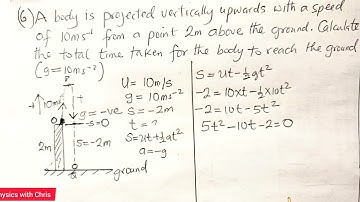 (6) A body is projected vertically upwards with a speed
of 10ms⁻¹ from a point 2m above the ground. Calculate
the total time taken for the body to reach the ground
(g=10ms⁻²)
u = 10m/s
g = 10ms⁻²
s = -2m
t = ?
s = ut + ½gt²
a = -g
+
t
g = -ve
-s=0
2m
s = -2m
ground
s = ut - ½gt²
-2 = 10xt - ½x10t²
-2 = 10t - 5t²
5t² - 10t - 2 = 0
ysics with Chris